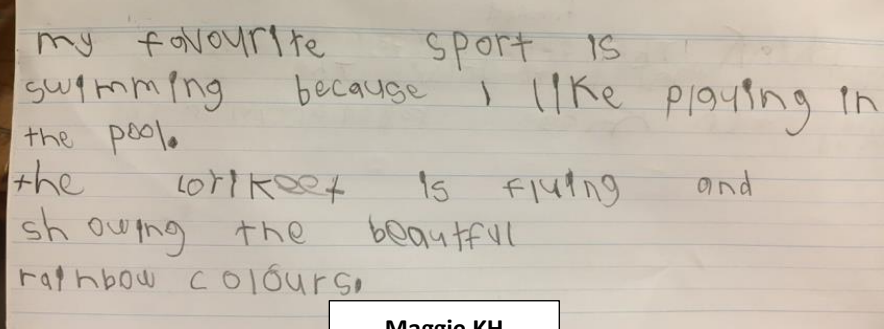 my favourite sport is
swimming because I like playing in
the pool.
the lorikeet is flying and
showing the beautful
rainbow colours.
Maggie KH